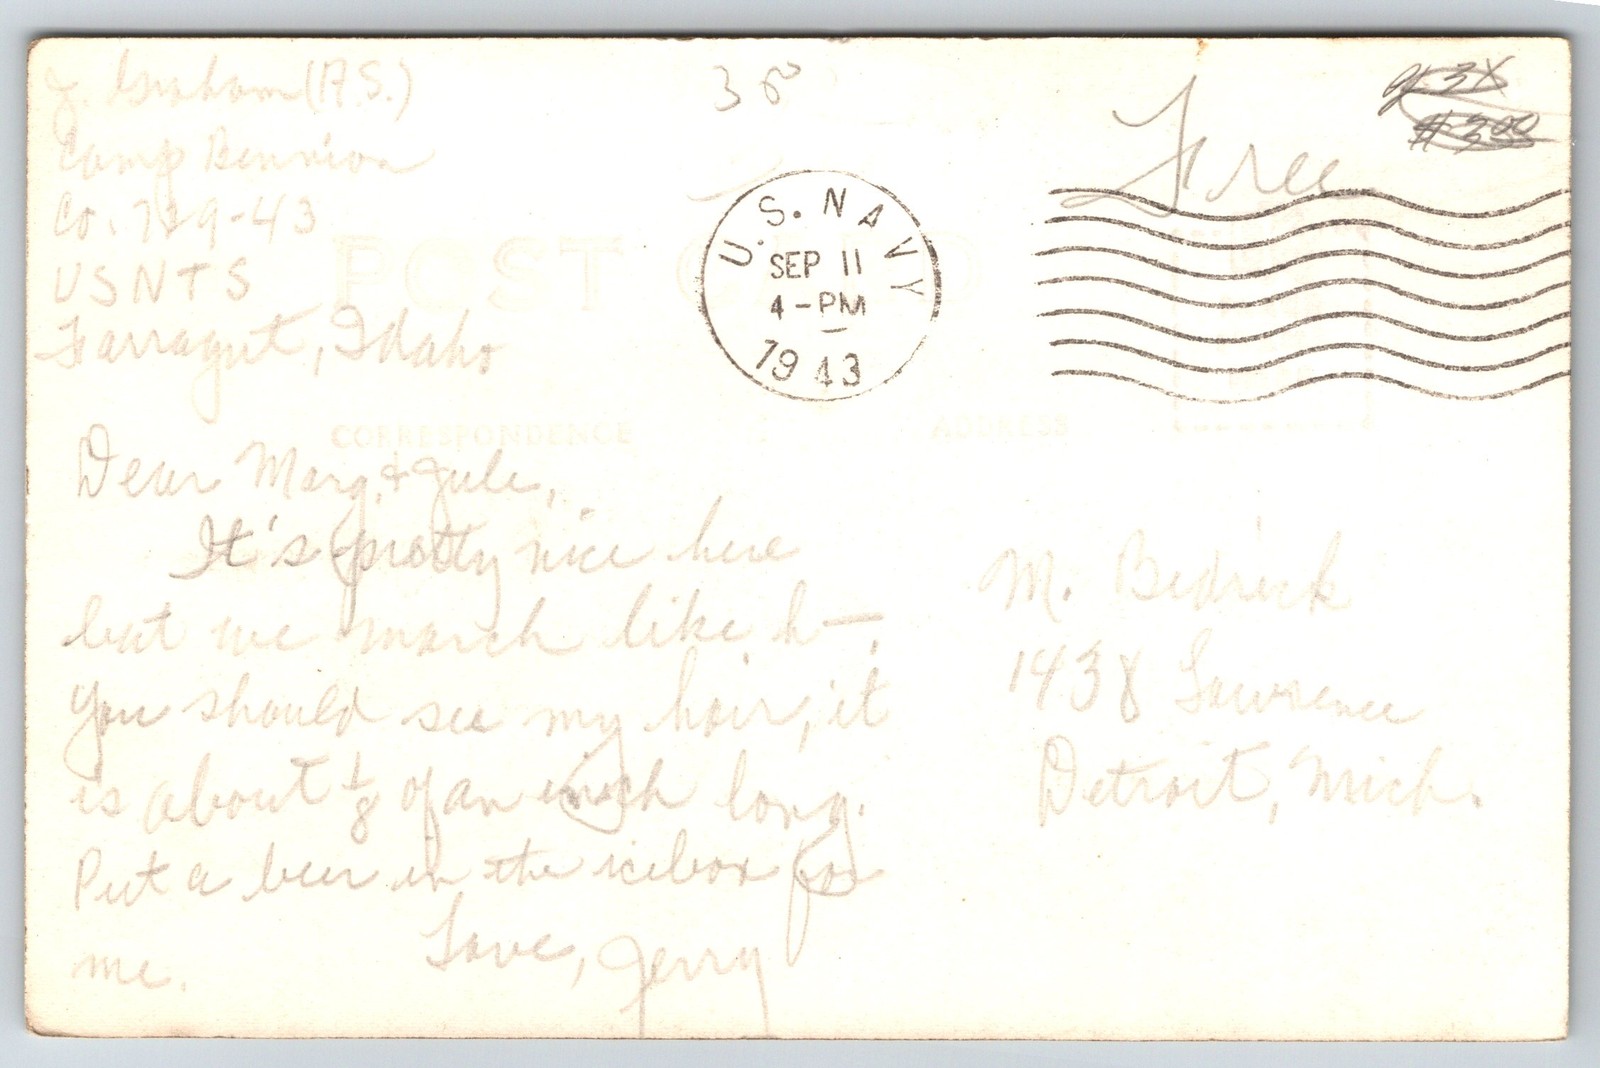 J. Graham (A.S.)
Camp Bennion
Co. 729-43
USNTS
Farragut, Idaho
3 50
Free
$3.00
U.S. NAVY
SEP 11
4-PM
1943
POST CARD
CORRESPONDENCE
ADDRESS
Dear Marg, & Jule,
It's pretty nice here
but we march like h—,
you should see my hair, it
is about 1/8 of an inch long.
Put a beer in the icebox for
me.
Love, Jerry
M. Bedrick
1438 Lawrence
Detroit, Mich.